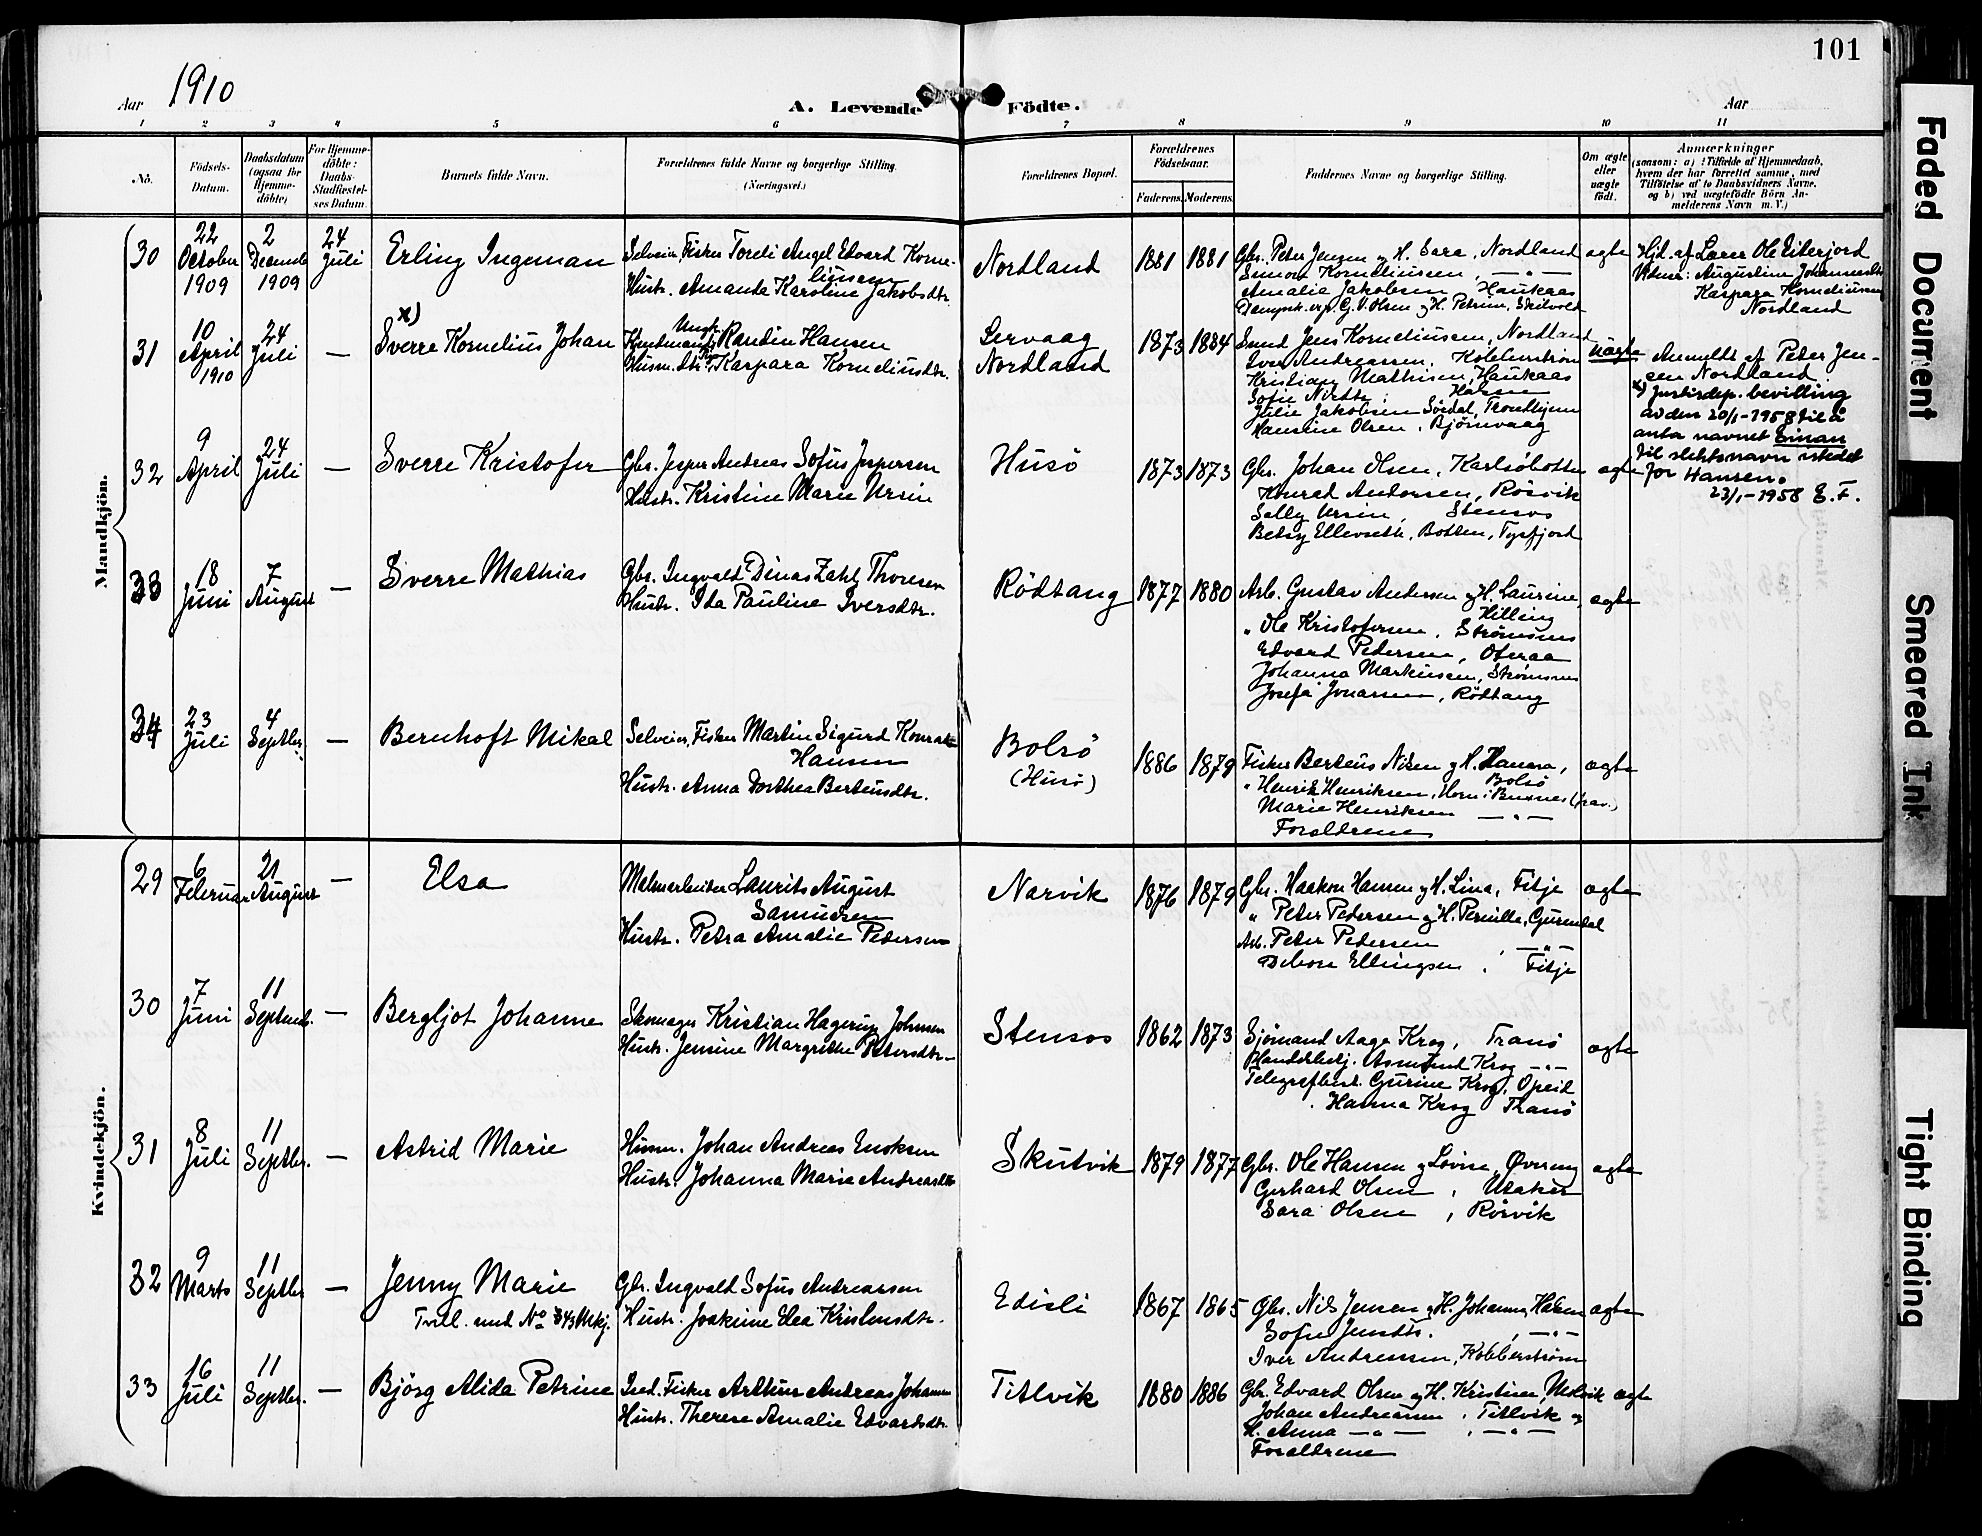 101
Aar 1910
A. Levende Födte.
Aar
1 2 3 4 5 6 7 8 9 10 11
No.
Födsels-
Datum.
Daabsdatum
(ogsaa for
Hjemme-
döbte)
For Hjemme-
döbte:
Daabs-
Stadfæstel-
ses Datum.
Barnets fulde Navn.
Forældrenes fulde Navne og borgerlige Stilling.
(Næringsvei.)
Forældrenes Bopæl.
Forældrenes
Födselsaar.
Faderens. Moderens.
Faddernes Navne og borgerlige Stilling.
Om ægte
eller
uægte
födt.
Anmærkninger
(saasom: a) i Tilfælde af Hjemmedaab,
hvem der har forrettet samme, med
Tilföielse af to Daabsvidners Navne,
og b) ved uægtefödte Börn An-
melderens Navn m. V.)
Mandkjön.
30
22
October
1909
2
Decemb
1909
24
Juli
Erling Ingeman
Selveier, Fisker Toreli Angel Edvard Korne-
liussen
Hustr. Amanda Karoline Jakobsdtr.
Nordland
1881 1881
Gbr. Peter Jensen og H. Sara, Nordland
Simon Korneliussen, — " —
Amalie Jakobsen, Haukaas
Dampsk.exp. G. V. Olsen og H. Petrine, Skilvold
ægte
Hjd. af Lærer Ole Eiterjord
Vidner: Augustine Johannesdtr
Kaspara Korneliussen
Nordland
31
10
April
1910
24
Juli
—
x)
Sverre Kornelius Johan
Ungk.
Randin Hansen
Husm.dtr. Kaspara Korneliusdtr.
Servaag
Nordland
1873 1884
Jens Korneliussen, Nordland
Iver Andreassen, Kobberström
Kristian Mathisen, Haukaas
Sofie Nilsdtr.
Julie Jakobsen Sördal, Trondhjem
Hansine Olsen, Björnvaag
uægte
Anmeldt af Peter Jen-
sen Nordland
x) Justisdep. bevilling
av den 20/1-1958 til å
anta navnet Einan
til slektsnavn istedet
for Hansen.
23/1-1958 E.F.
32
9
April
24
Juli
—
Sverre Kristofer
Gbr. Jesper Andreas Sofus Jespersen
Hustr. Kristine Marie Ursin
Husö
1873 1873
Gbr. Johan Olsen, Karlsöbotten
Konrad Andersen, Rösvik
Selly Ursin, Stensos
Betsy Ellevseth, Botten, Tysfjord
ægte
33
18
Juni
7
August
—
Sverre Mathias
Gbr. Ingvald Dinas Zahl Thoresen
Hustr. Ida Pauline Iversdtr.
Rödtang
1877 1880
Arb. Gustav Andersen og H. Laurine,
Hilling
" Ole Kristofersen, Strömsnes
Edvard Pedersen, Oteraa
Johanna Markussen, Strömsnes
Josefa Jonassen, Rödtang
ægte
34
23
Juli
4
Septbr.
—
Bernhoft Mikal
Selveier, Fisker Martin Sigurd Konrad
Hansen
Hustr. Anna Dorthea Berteusdtr.
Bolsö
(Husö)
1886 1879
Fisker Berteus Nilsen og H. Hanna,
Bolsö
" Henrik Henriksen, Horn i Buxnes (frav.)
Marie Henriksen — " —
Forældrene
ægte
Kvindekjön.
29
6
Februar
21
August
—
Elsa
Malmarbeider Laurits August
Samuelsen
Hustr. Petra Amalie Pedersen
Narvik
1876 1879
Gbr. Haakon Hansen og H. Lina, Fitje
" Peter Pedersen og H. Pernille, Gurendal
Arb. Peter Pedersen — " —
Ellingsen, Fitje
ægte
30
7
Juni
11
Septemb.
—
Bergljot Johanne
Skomager Kristian Hagerup Johnsen
Hustr. Jensine Margrethe Petersdtr.
Stensos
1862 1873
Sjömand Aage Krog, Tranö
Handelsbetj. Asmund Krog — " —
Telegrafbest. Gurine Krog, Opeid
Hanna Krog Tranö
ægte
31
8
Juli
11
Septbr.
—
Astrid Marie
Husm. Johan Andreas Enoksen
Hustr. Johanna Marie Andreasdtr
Skutvik
1879 1877
Gbr. Ole Hansen og Lovise, Övereng
Gerhard Olsen, Utaker
Sara Olsen, Rörvik
ægte
32
9
Marts
11
Septbr
—
Jenny Marie
Tvill. med No 34 Mkj.
Gbr. Ingvald Sofus Andreassen
Hustr. Joakime Elea Kristensdtr.
Edisli
1867 1865
Gbr. Nils Jensen og H. Johanna, Hålsen
Sofie Jensdtr. , — " —
Iver Andreassen, Kobberström
ægte
33
16
Juli
11
Septbr.
—
Björg Alida Petrine
Ind. Fisker Arthur Andreas Johansen
Hustr. Therese Amalie Edvardsdtr.
Titlvik
1880 1886
Gbr. Edvard Olsen og H. Kristine, Ulvik
Johan Andreassen, Titlvik og
H. Anna — " — , — " —
Forældrene
ægte
Faded Document
Smeared Ink
Tight Binding